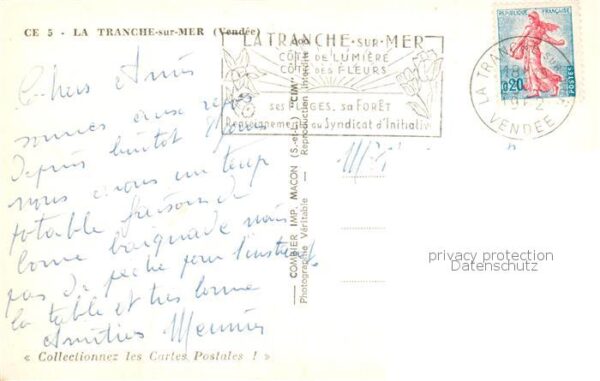 CE 5 - LA TRANCHE-sur-MER (Vendée)
LA TRANCHE-SUR-MER
CÔTE DE LUMIÈRE
CÔTE DES FLEURS
ses PLAGES, sa FORÊT
Renseignements au Syndicat d'Initiative
REPUBLIQUE FRANÇAISE
0,20
POSTES
LA TRANCHE SUR MER
VENDÉE
Chers Amis
sommes
depuis bientôt
nous avons un temps
potable faisons de
bonne baignade mais
pas de pêche pour l'instant
la table est très bonne
Amitiés
COMBIER IMP. MACON (S.-et-L.) "CIM"
Photographie Véritable - Reproduction Interdite
privacy protection
Datenschutz
« Collectionnez les Cartes Postales ! »